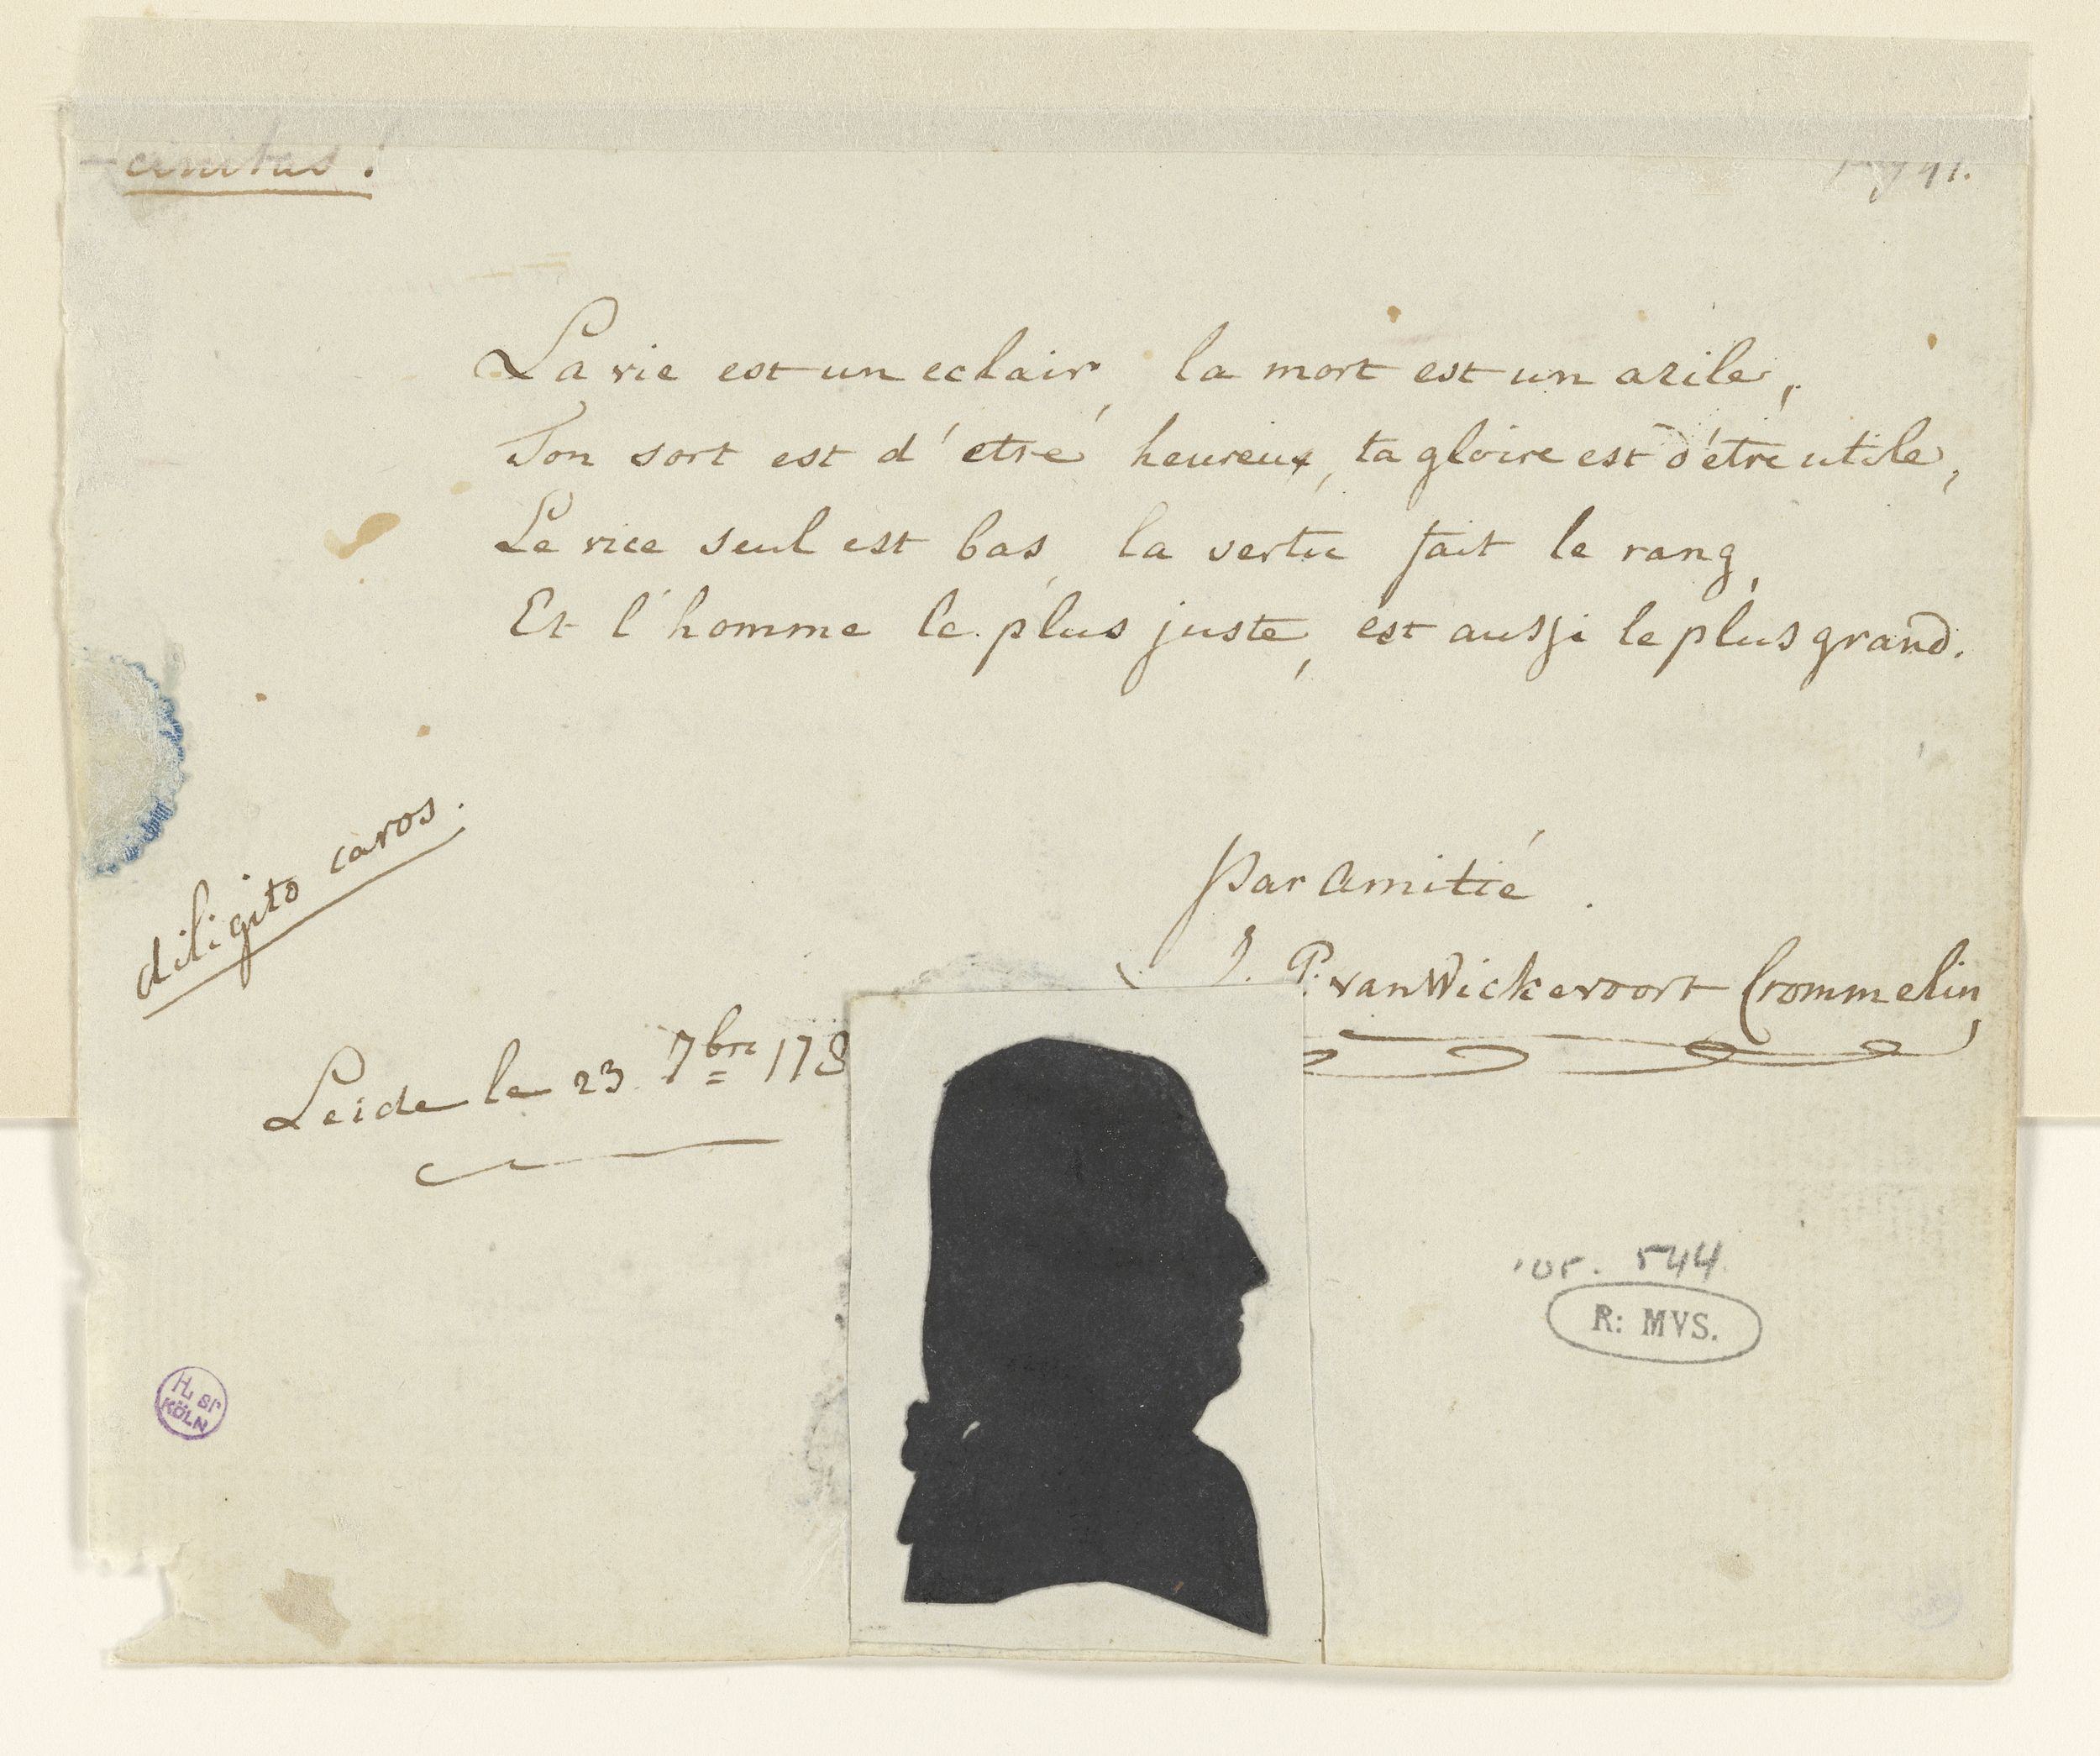 amitas!
41.
La vie est un eclair, la mort est un azile,
Ton sort est d'etre heureux, ta gloire est d'étre utile,
Le vice seul est bas, la vertu fait le rang,
Et l'homme le plus juste, est aussi le plus grand.
diligito caros.
Par amitié.
J. P. van Wickevoort Crommelin
Leide le 23 7bre 178
544
R: MVS.
KÖLN